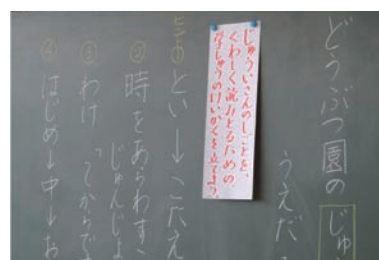 どうぶつ園のじゅ
うえだ
じゅういさんのしごとを、
くわしく読みとるための、
学しゅうのけいかくを立てよう。
ヒント
①とい→こたえ
②時をあらわす
じゅんじょ
③わけ「てからで
④はじめ→中→お